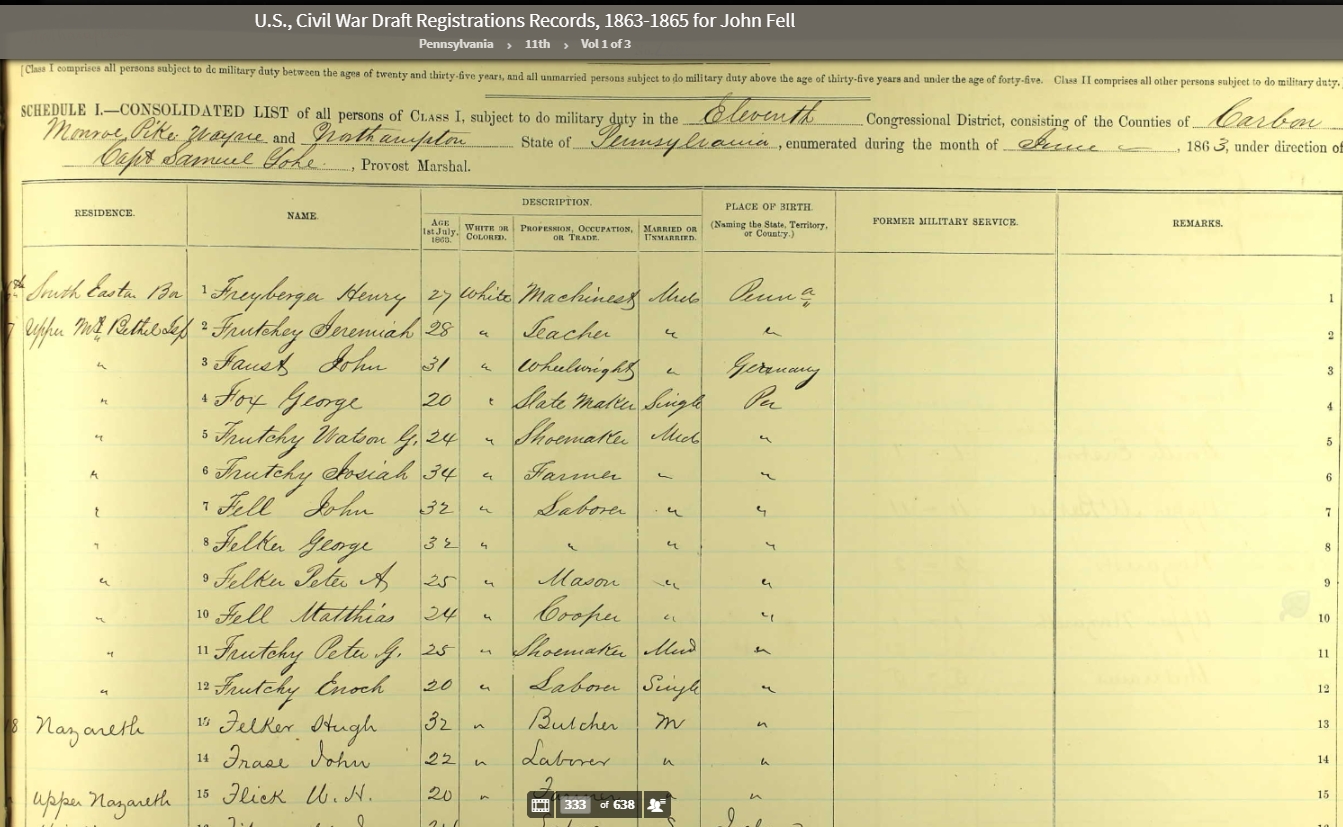 U.S., Civil War Draft Registrations Records, 1863-1865 for John Fell
Pennsylvania › 11th › Vol 1 of 3
[Class I comprises all persons subject to do military duty between the ages of twenty and thirty-five years, and all unmarried persons subject to do military duty above the age of thirty-five years and under the age of forty-five. Class II comprises all other persons subject to do military duty.
SCHEDULE I.—CONSOLIDATED LIST of all persons of CLASS I, subject to do military duty in the Eleventh Congressional District, consisting of the Counties of Carbon
Monroe, Pike, Wayne and Northampton State of Pennsylvania, enumerated during the month of June, 1863, under direction of
Capt Samuel Yohe, Provost Marshal.
RESIDENCE. NAME. DESCRIPTION. PLACE OF BIRTH. FORMER MILITARY SERVICE. REMARKS.
AGE 1st July, 1863. WHITE OR COLORED. PROFESSION, OCCUPATION, OR TRADE. MARRIED OR UNMARRIED. (Naming the State, Territory, or Country.)
South Easton Bor 1 Freyberger Henry 27 White Machinest Mrd Penna 1
Upper Mt Bethel Tsp 2 Frutchey Jeremiah 28 " Teacher " " 2
" 3 Faust John 31 " Wheelwright " Germany 3
" 4 Fox George 20 " Slate Maker Single Pa 4
" 5 Frutchy Watson G. 24 " Shoemaker Mrd " 5
" 6 Frutchy Josiah 34 " Farmer " " 6
" 7 Fell John 32 " Laborer " " 7
" 8 Felker George 32 " " " " 8
" 9 Felker Peter A 25 " Mason " " 9
" 10 Fell Matthias 24 " Cooper " " 10
" 11 Frutchy Peter G. 25 " Shoemaker Mrd " 11
" 12 Frutchy Enoch 20 " Laborer Single " 12
8 Nazareth 13 Felker Hugh 32 " Butcher M " 13
14 Frase John 22 " Laborer " " 14
Upper Nazareth 15 Flick W. H. 20 " " " 15
333 of 638